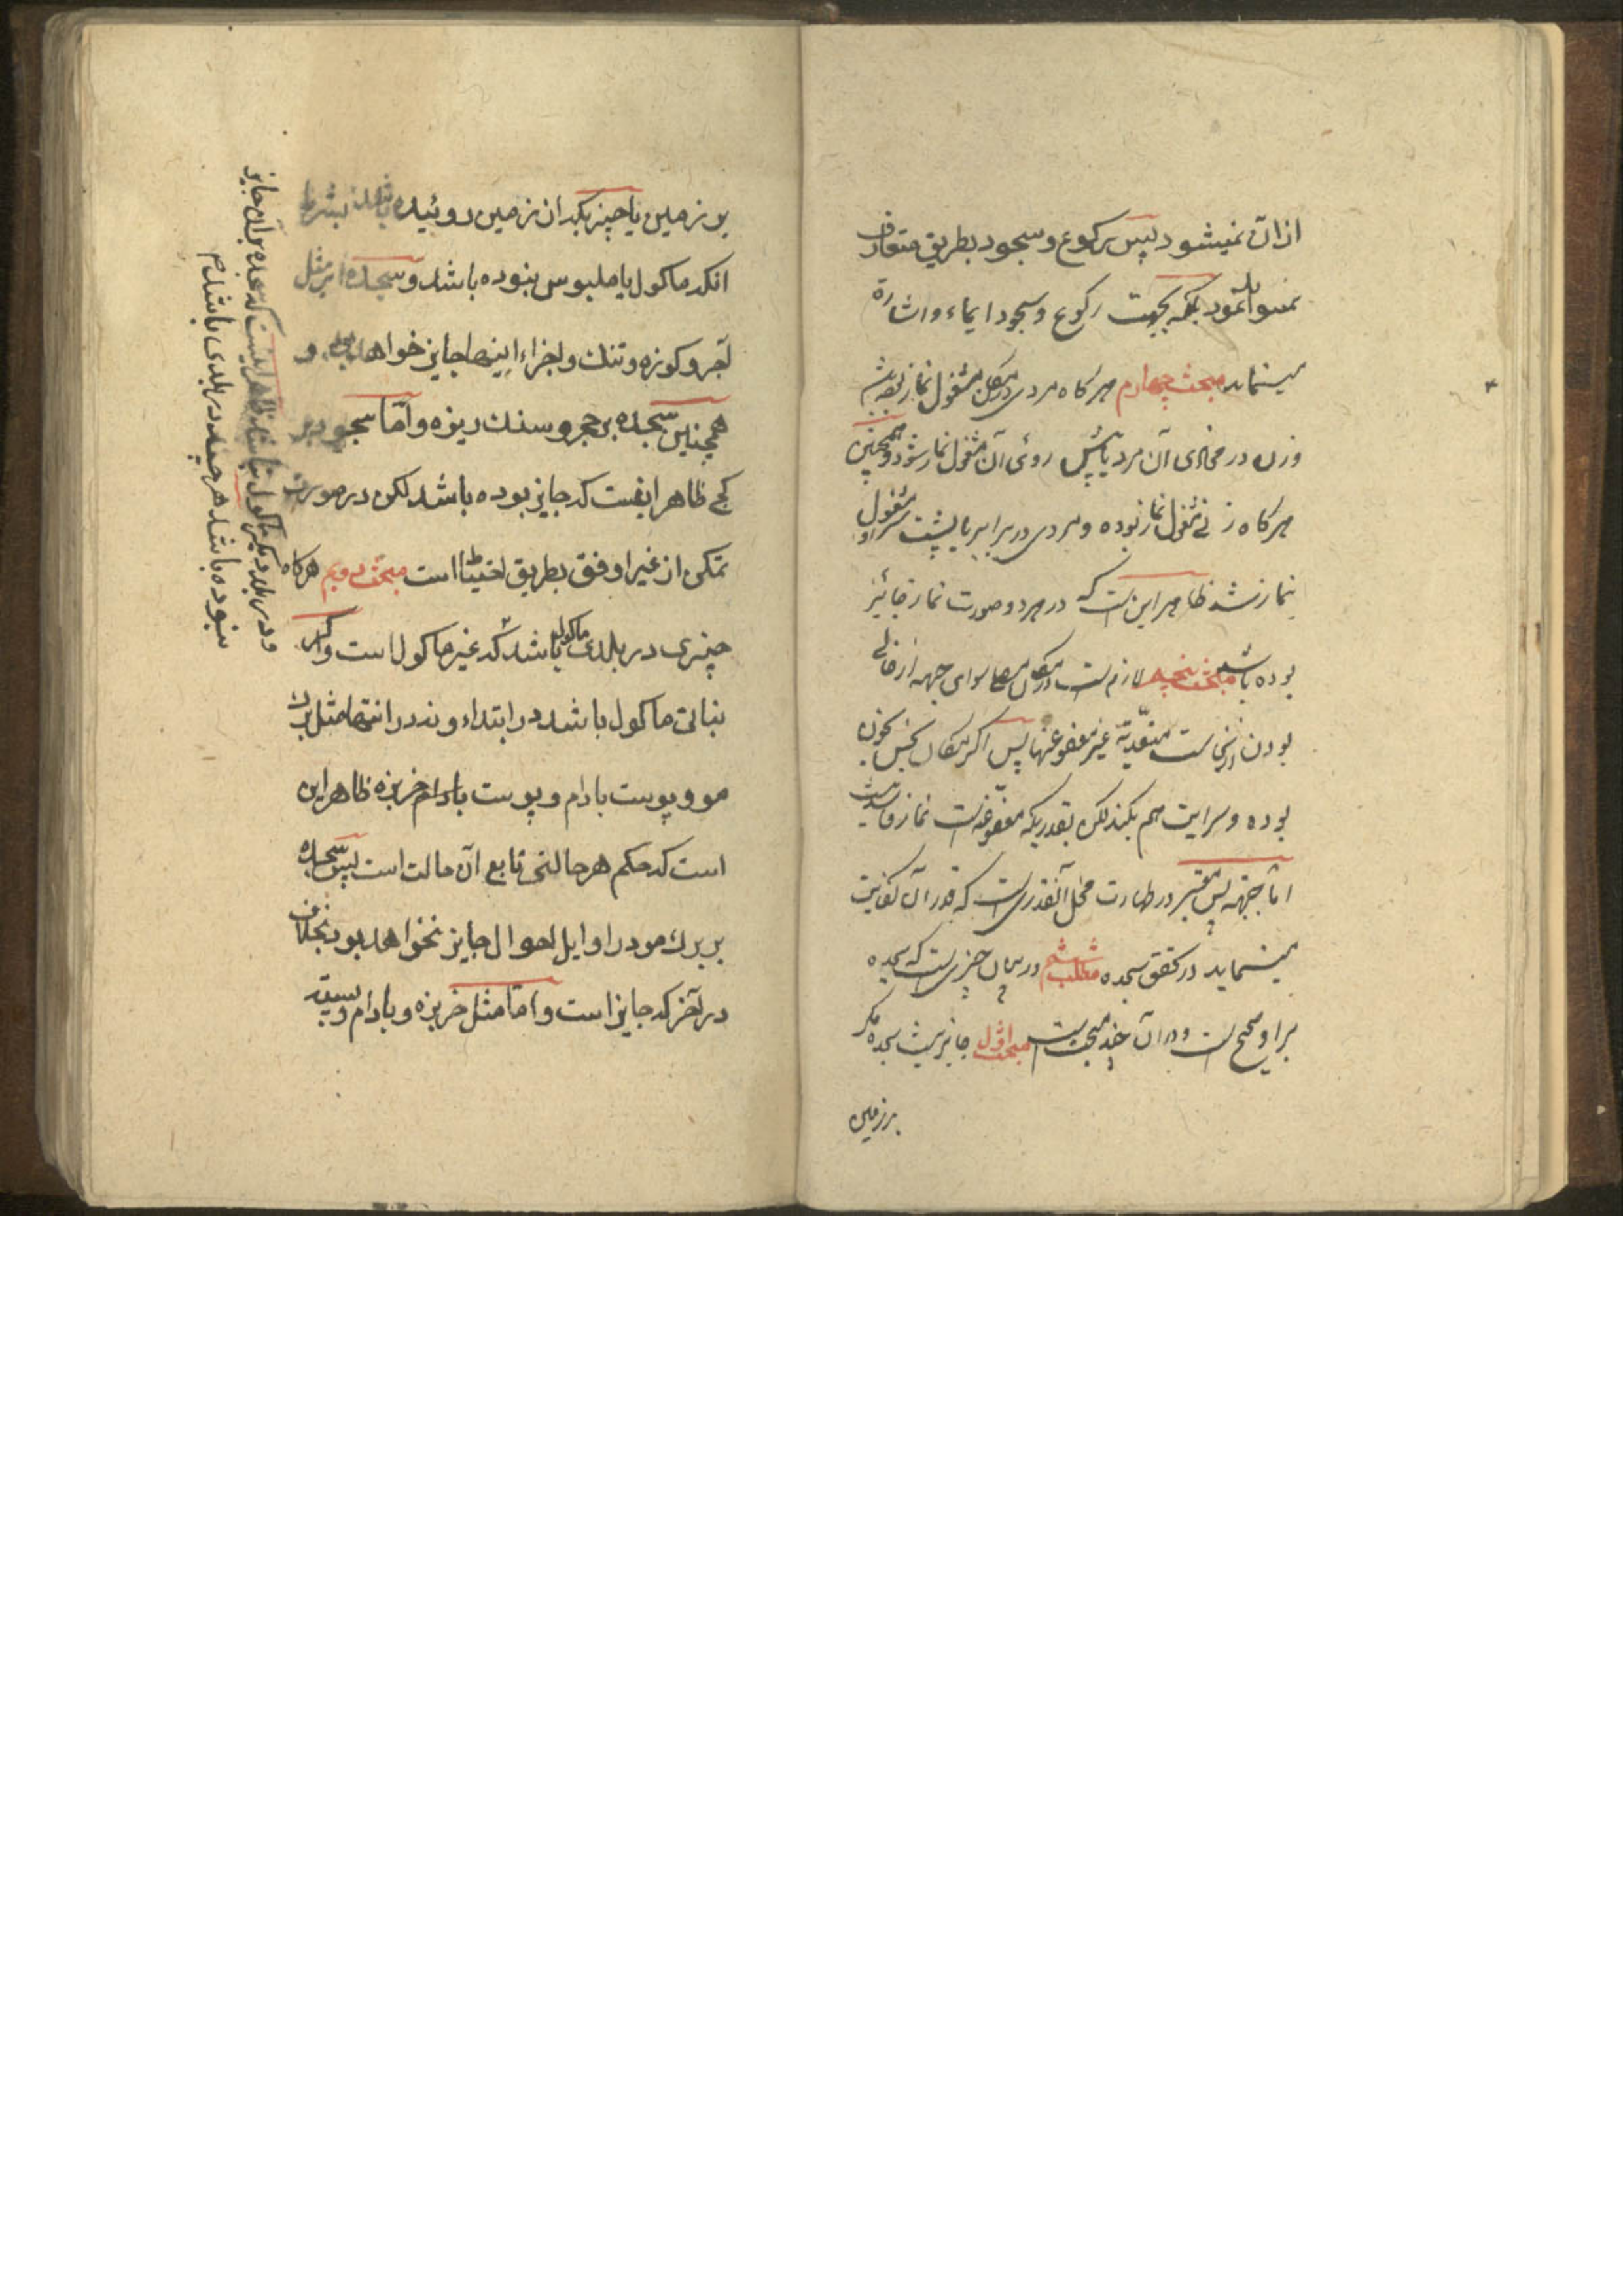 ازان نمیشود پس رکوع و سجود بطریق متعارف
نمیتواند نمود بلکه بجهت رکوع و سجود ایماء و اشارة
مینماید مبحث چهارم هر کاه مردی در مکان مشغول نماز
وزن در محاذی آن مرد یا پیش روی آن مشغول نماز شود و همچنین
هر کاه زنی مشغول نماز بوده و مردی در برابر یا پشت سر او مشغول
نماز شد ظاهر این است که در هر دو صورت نماز جائز
بوده باشد مبحث پنجم لازم است در مکان مصلی سوای جبهه از خالی
بودن از نجاست متعدّیة غیر معفو عنها پس اکر مکان نجس
بوده و سرایت هم بکند لکن بقدریکه معفوّ عنه است نماز فاسد نیست
امّا جبهه پس معتبر در طهارت محل آنقدری است که قدر آن کفایت
مینماید در تحقق سجده مطلب ششم در بیان چیزی است که سجده
براو صحیح است و در آن چند مبحث است مبحث اوّل جایز نیست سجده مکر
برزمین
بر زمین یا چیزیکه ازان زمین روئیده باشد بشرط
انکه ماکول یا ملبوس نبوده باشد و سجده بر مثل
آجر و کوزه و تنك و اجزاء اینها جایز خواهد بود و
همچنین سجده بر حجر و سنك ریزه و امّا سجود بر
کچ ظاهر اینست که جایز بوده باشد لکن در صورت
تمکن از غیر اوفق بطریق احتیاط است مبحث دویم هر کاه
چیزی در بلدی ماکول باشد که غیر ماکول است و اکر
نباتی ماکول باشد در ابتداء و نه در انتها مثل برك
مو و پوست بادام و پوست خربزه ظاهر این
است که حکم هر حالتی تابع آن حالت است پس سجده
بر برك مو در اوایل احوال جایز نخواهد بود بخلاف
در آخر که جایز است و امّا مثل خربزه و بادام و پسته
و در بلد دیکر ماکول نباشد ظاهر اینست که سجده بر آن جایز
نبوده باشد هر چند در بلدی باشد